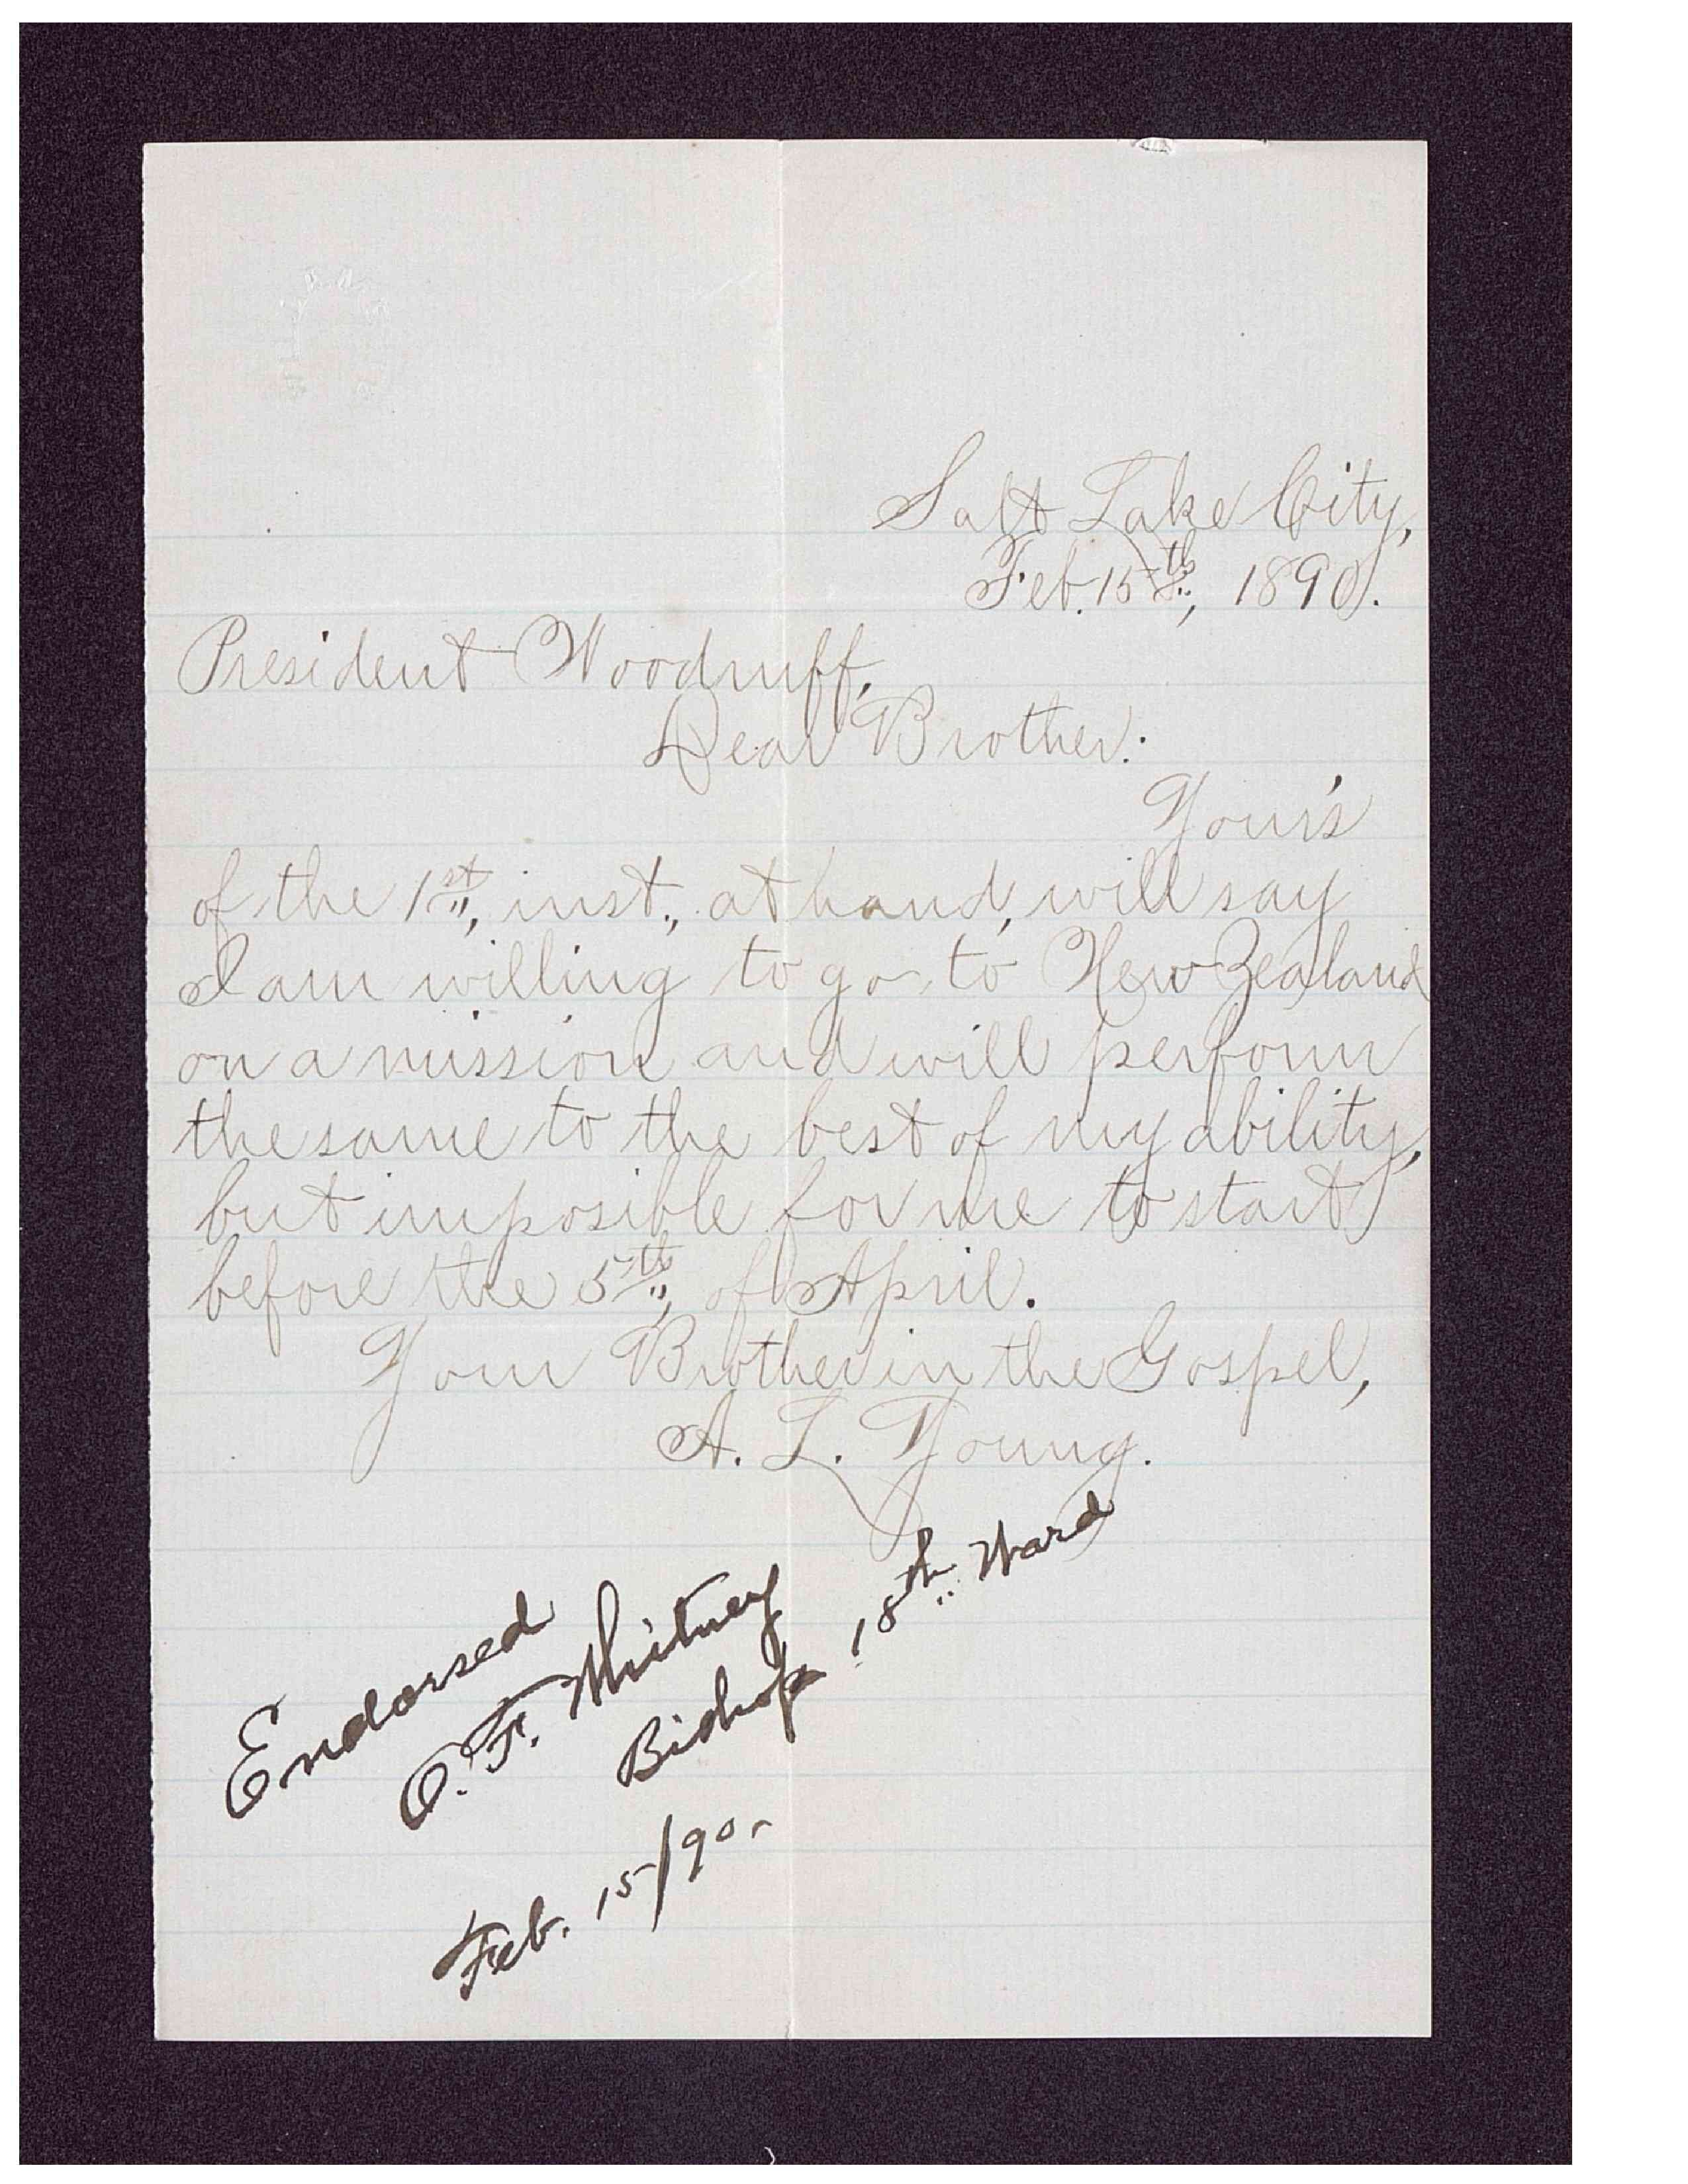 Salt Lake City,
Feb. 15th, 1890.
President Woodruff,
Dear Brother:
Your's
of the 1st, inst., at hand, will say
I am willing to go to New Zealand
on a mission and will perform
the same to the best of my ability,
but imposible for me to start
before the 5th, of April.
Your Brother in the Gospel,
A. L. Young.
Endorsed
O. F. Whitney
Bishop 18th Ward
Feb. 15/90.